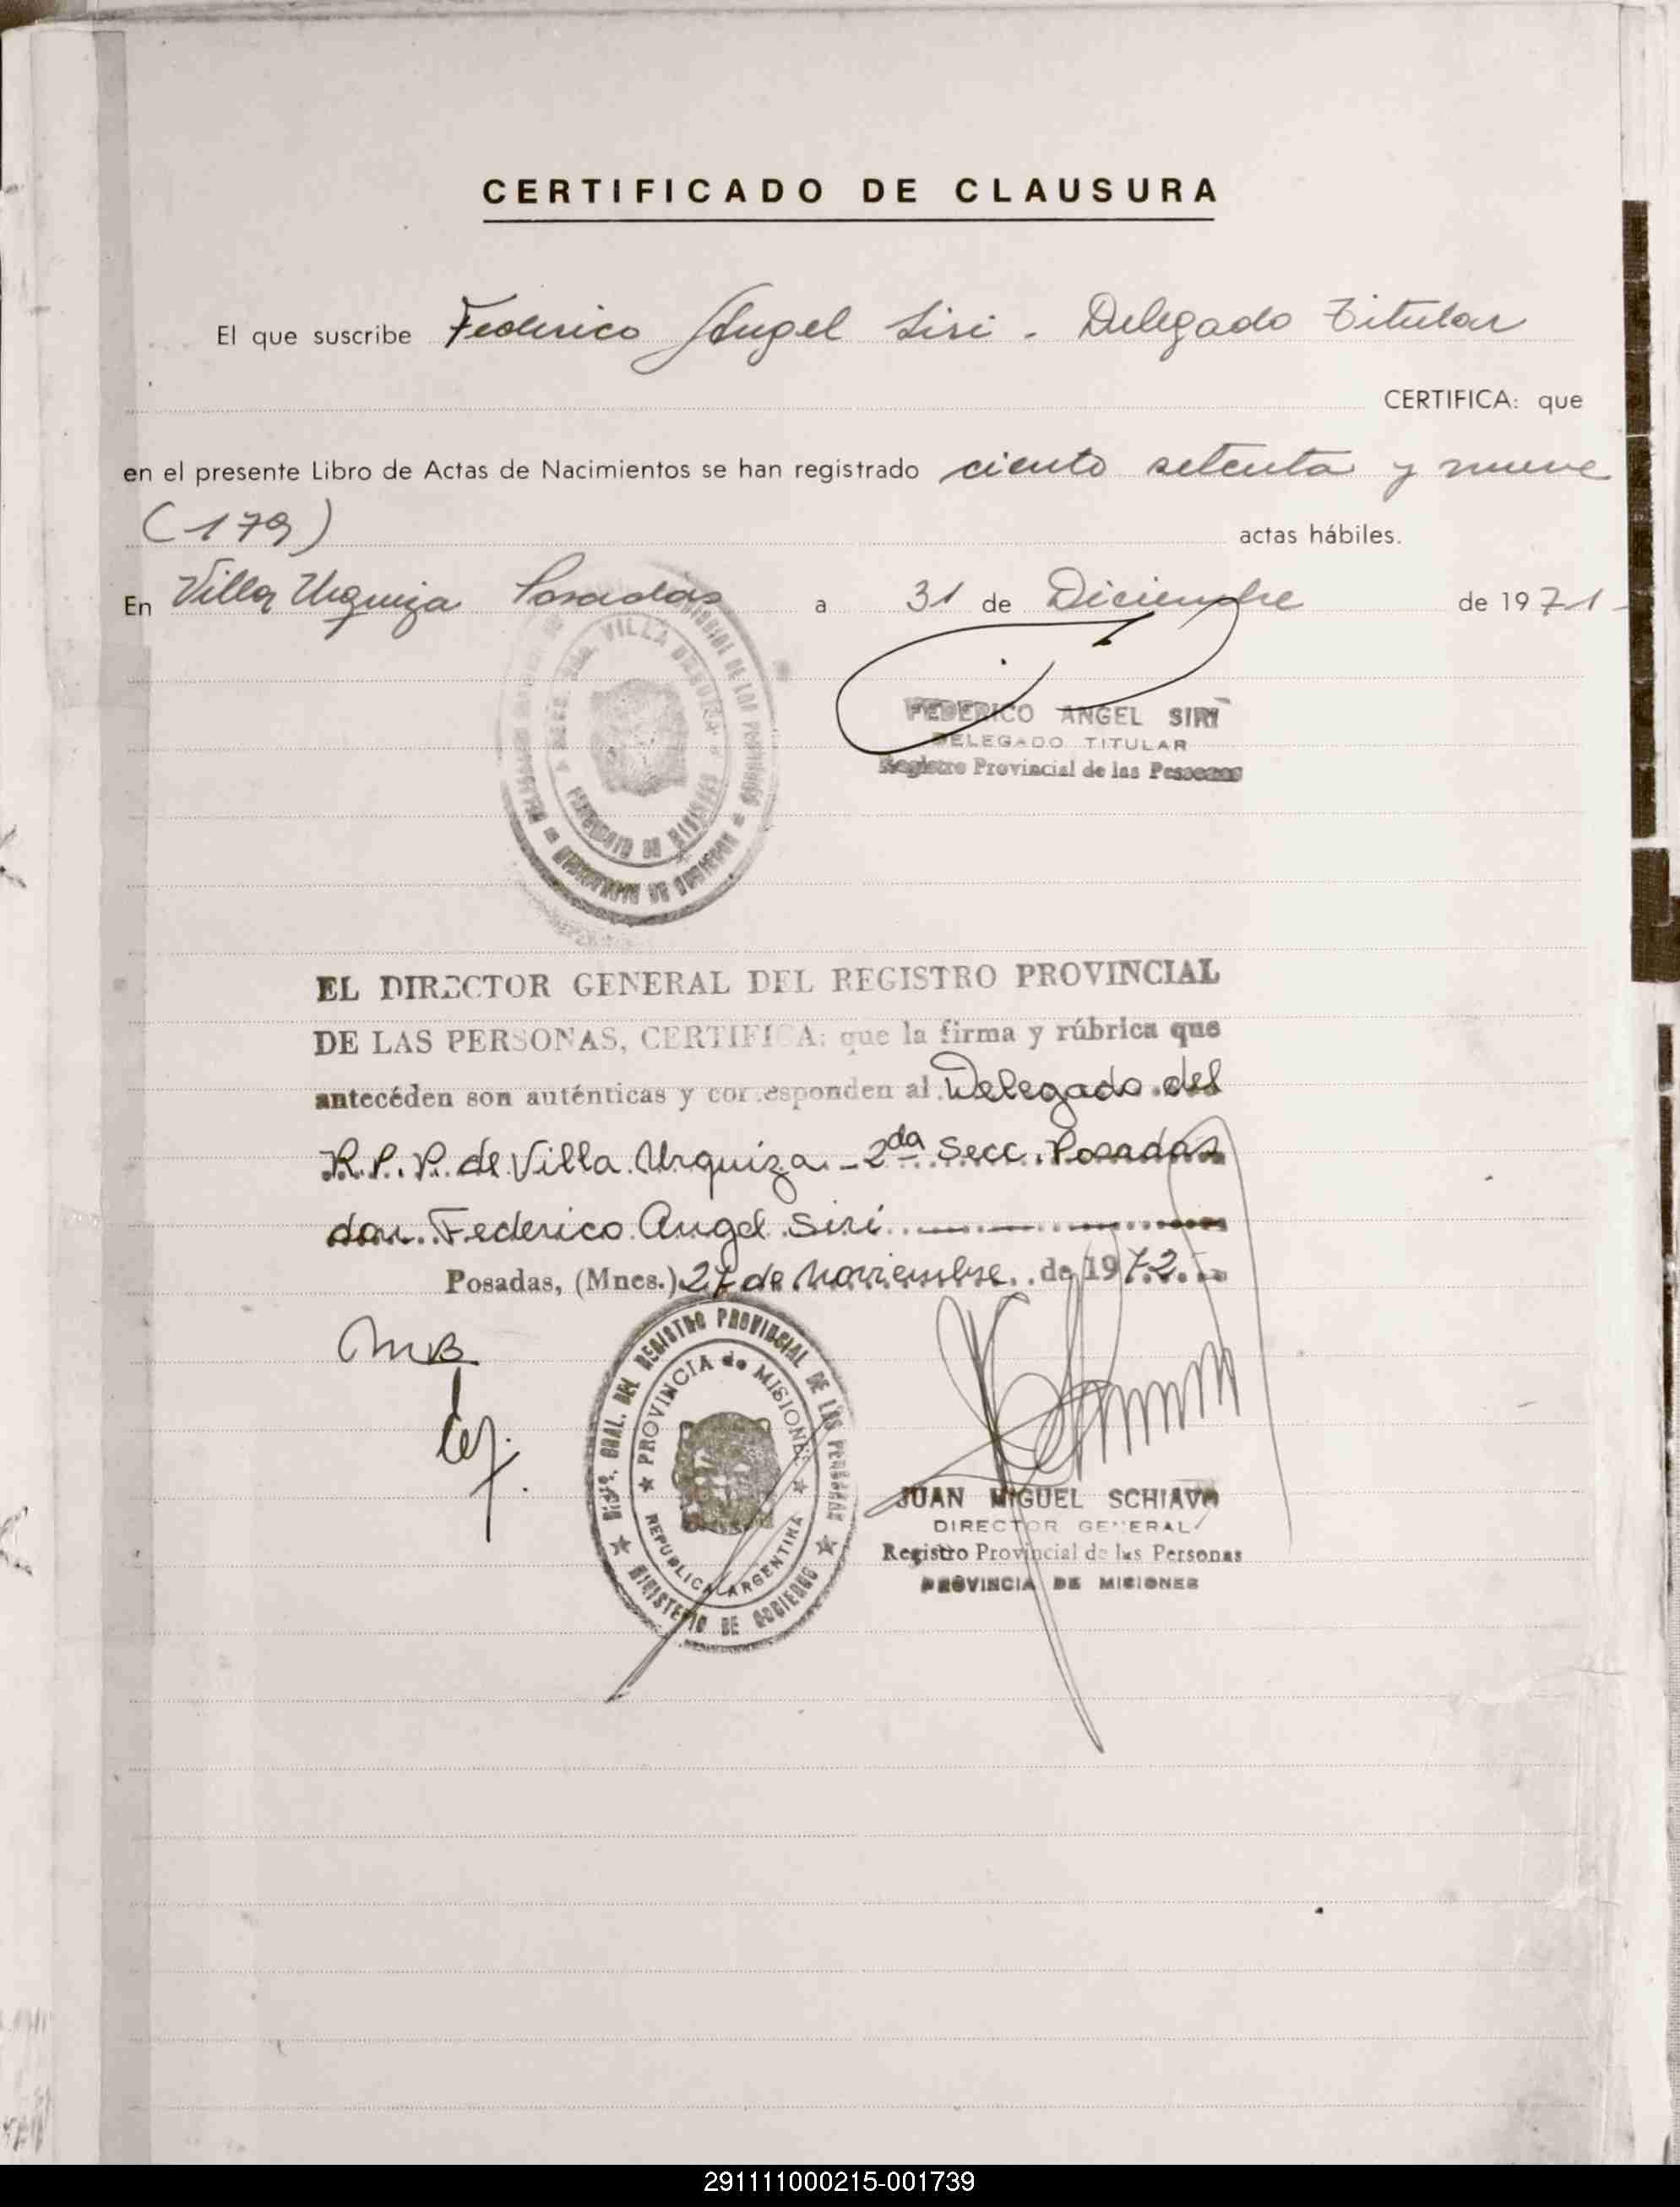 CERTIFICADO DE CLAUSURA
El que suscribe Federico Angel Siri - Delegado Titular
CERTIFICA: que
en el presente Libro de Actas de Nacimientos se han registrado ciento setenta y nueve
(179) actas hábiles.
En Villa Urquiza Posadas a 31 de Diciembre de 1971-
FEDERICO ANGEL SIRI
DELEGADO TITULAR
Registro Provincial de las Personas
EL DIRECTOR GENERAL DEL REGISTRO PROVINCIAL
DE LAS PERSONAS, CERTIFICA: que la firma y rúbrica que
antecéden son auténticas y corresponden al Delegado del
R.P.P. de Villa Urquiza - 2da Secc. Posadas
don Federico Angel Siri
Posadas, (Mnes.) 27 de Noviembre de 1972
DIRC. GRAL. DEL REGISTRO PROVINCIAL DE LAS PERSONAS
PROVINCIA de MISIONES
REPUBLICA ARGENTINA
MINISTERIO DE GOBIERNO
JUAN MIGUEL SCHIAVO
DIRECTOR GENERAL
Registro Provincial de las Personas
PROVINCIA DE MISIONES
291111000215-001739